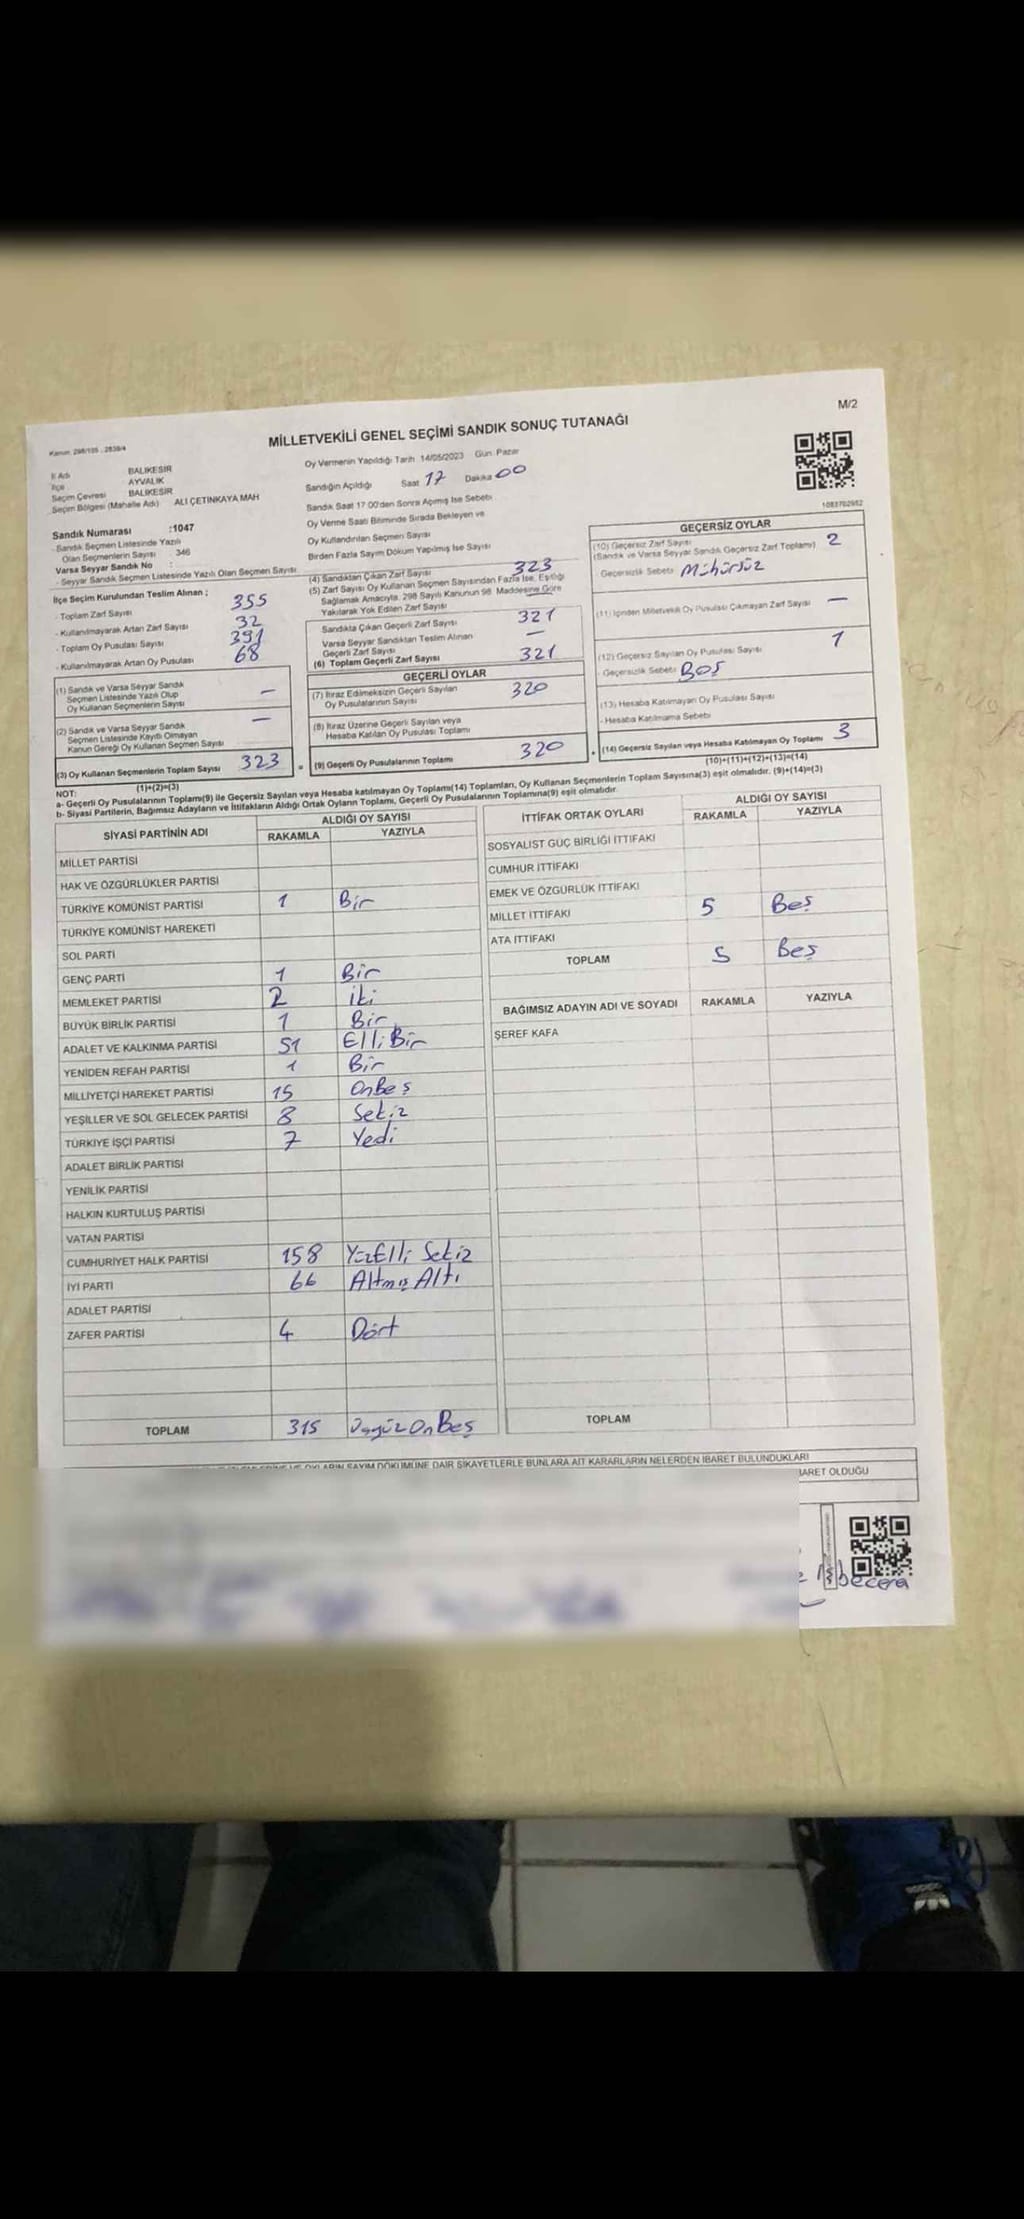 M/2
MİLLETVEKİLİ GENEL SEÇİMİ SANDIK SONUÇ TUTANAĞI
Kanun: 298/105 , 2839/4
İl Adı BALIKESİR
İlçe AYVALIK
Seçim Çevresi BALIKESİR
Seçim Bölgesi (Mahalle Adı) ALİ ÇETİNKAYA MAH
Sandık Numarası :1047
- Sandık Seçmen Listesinde Yazılı
Olan Seçmenlerin Sayısı : 346
Varsa Seyyar Sandık No :
- Seyyar Sandık Seçmen Listesinde Yazılı Olan Seçmen Sayısı
Oy Vermenin Yapıldığı Tarih 14/05/2023 Gün Pazar
Sandığın Açıldığı Saat 17 Dakika 00
Sandık Saat 17:00'den Sonra Açılmış İse Sebebi
Oy Verme Saati Bitiminde Sırada Bekleyen ve
Oy Kullandırılan Seçmen Sayısı
Birden Fazla Sayım Döküm Yapılmış İse Sayısı
1083702982
İlçe Seçim Kurulundan Teslim Alınan ;
- Toplam Zarf Sayısı 355
- Kullanılmayarak Artan Zarf Sayısı 32
- Toplam Oy Pusulası Sayısı 391
- Kullanılmayarak Artan Oy Pusulası 68
(1) Sandık ve Varsa Seyyar Sandık
Seçmen Listesinde Yazılı Olup
Oy Kullanan Seçmenlerin Sayısı —
(2) Sandık ve Varsa Seyyar Sandık
Seçmen Listesinde Kayıtlı Olmayan
Kanun Gereği Oy Kullanan Seçmen Sayısı —
(3) Oy Kullanan Seçmenlerin Toplam Sayısı 323
(1)+(2)=(3)
(4) Sandıktan Çıkan Zarf Sayısı 323
(5) Zarf Sayısı Oy Kullanan Seçmen Sayısından Fazla İse, Eşitliği
Sağlamak Amacıyla, 298 Sayılı Kanunun 98. Maddesine Göre
Yakılarak Yok Edilen Zarf Sayısı —
Sandıkta Çıkan Geçerli Zarf Sayısı 321
Varsa Seyyar Sandıktan Teslim Alınan
Geçerli Zarf Sayısı —
(6) Toplam Geçerli Zarf Sayısı 321
GEÇERLİ OYLAR
(7) İtiraz Edilmeksizin Geçerli Sayılan
Oy Pusulalarının Sayısı 320
(8) İtiraz Üzerine Geçerli Sayılan veya
Hesaba Katılan Oy Pusulası Toplamı
= (9) Geçerli Oy Pusulalarının Toplamı 320
GEÇERSİZ OYLAR
(10) Geçersiz Zarf Sayısı
(Sandık ve Varsa Seyyar Sandık Geçersiz Zarf Toplamı) 2
- Geçersizlik Sebebi Mühürsüz
(11) İçinden Milletvekili Oy Pusulası Çıkmayan Zarf Sayısı —
(12) Geçersiz Sayılan Oy Pusulası Sayısı 1
- Geçersizlik Sebebi Boş
(13) Hesaba Katılmayan Oy Pusulası Sayısı
- Hesaba Katılmama Sebebi
+ (14) Geçersiz Sayılan veya Hesaba Katılmayan Oy Toplamı 3
(10)+(11)+(12)+(13)=(14)
NOT:
a- Geçerli Oy Pusulalarının Toplamı(9) ile Geçersiz Sayılan veya Hesaba katılmayan Oy Toplamı(14) Toplamları, Oy Kullanan Seçmenlerin Toplam Sayısına(3) eşit olmalıdır. (9)+(14)=(3)
b- Siyasi Partilerin, Bağımsız Adayların ve İttifakların Aldığı Ortak Oyların Toplamı, Geçerli Oy Pusulalarının Toplamına(9) eşit olmalıdır.
SİYASİ PARTİNİN ADI ALDIĞI OY SAYISI
RAKAMLA YAZIYLA
MİLLET PARTİSİ
HAK VE ÖZGÜRLÜKLER PARTİSİ
TÜRKİYE KOMÜNİST PARTİSİ 1 Bir
TÜRKİYE KOMÜNİST HAREKETİ
SOL PARTİ
GENÇ PARTİ 1 Bir
MEMLEKET PARTİSİ 2 İki
BÜYÜK BİRLİK PARTİSİ 1 Bir
ADALET VE KALKINMA PARTİSİ 51 Elli Bir
YENİDEN REFAH PARTİSİ 1 Bir
MİLLİYETÇİ HAREKET PARTİSİ 15 OnBeş
YEŞİLLER VE SOL GELECEK PARTİSİ 8 Sekiz
TÜRKİYE İŞÇİ PARTİSİ 7 Yedi
ADALET BİRLİK PARTİSİ
YENİLİK PARTİSİ
HALKIN KURTULUŞ PARTİSİ
VATAN PARTİSİ
CUMHURİYET HALK PARTİSİ 158 YüzElli Sekiz
İYİ PARTİ 66 Altmış Altı
ADALET PARTİSİ
ZAFER PARTİSİ 4 Dört
TOPLAM 315 Üçyüz OnBeş
İTTİFAK ORTAK OYLARI ALDIĞI OY SAYISI
RAKAMLA YAZIYLA
SOSYALİST GÜÇ BİRLİĞİ İTTİFAKI
CUMHUR İTTİFAKI
EMEK VE ÖZGÜRLÜK İTTİFAKI
MİLLET İTTİFAKI 5 Beş
ATA İTTİFAKI
TOPLAM 5 Beş
BAĞIMSIZ ADAYIN ADI VE SOYADI RAKAMLA YAZIYLA
ŞEREF KAFA
TOPLAM
OYLARIN SAYIM DÖKÜMÜNE DAİR ŞİKAYETLERLE BUNLARA AİT KARARLARIN NELERDEN İBARET BULUNDUKLARI
İBARET OLDUĞU